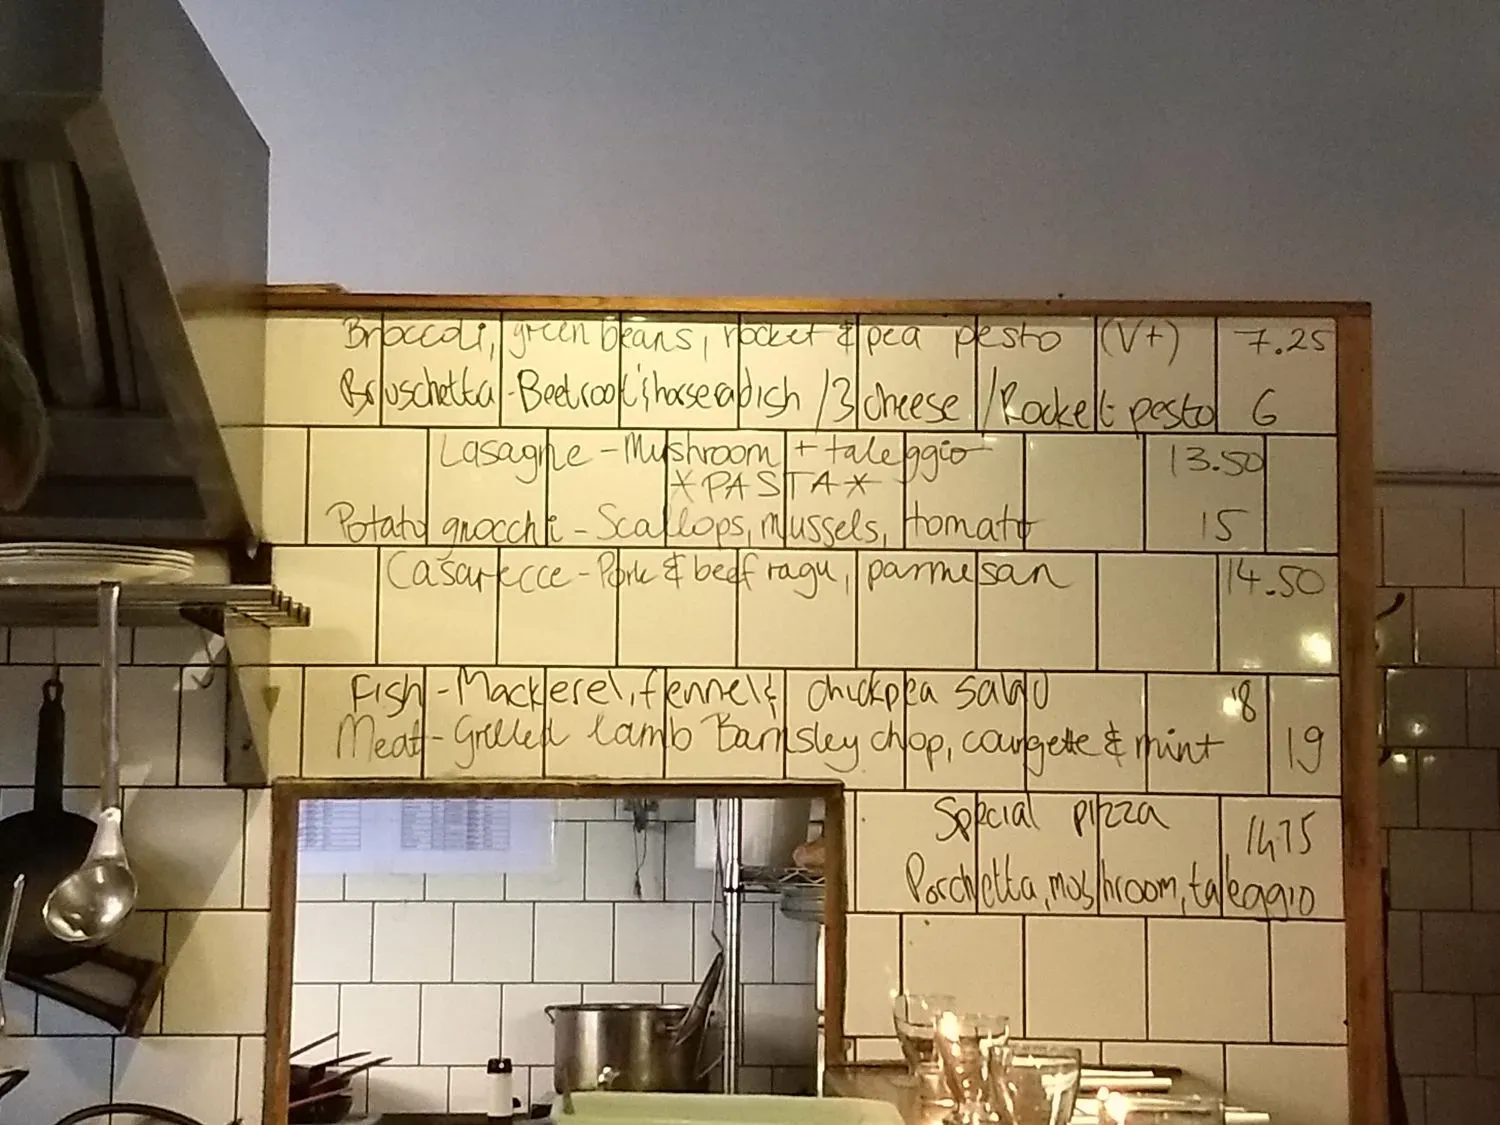 Broccoli, green beans, rocket & pea pesto (V+) 7.25
Bruschetta - Beetroot & horseradish / 3 cheese / Rocket pesto 6
Lasagne - Mushroom + taleggio 13.50
*PASTA*
Potato gnocchi - Scallops, mussels, tomato 15
Casarecce - Pork & beef ragu, parmesan 14.50
Fish - Mackerel, fennel & chickpea salad 18
Meat - Grilled lamb Barnsley chop, courgette & mint 19
Special pizza 14,75
Porchetta, mushroom, taleggio